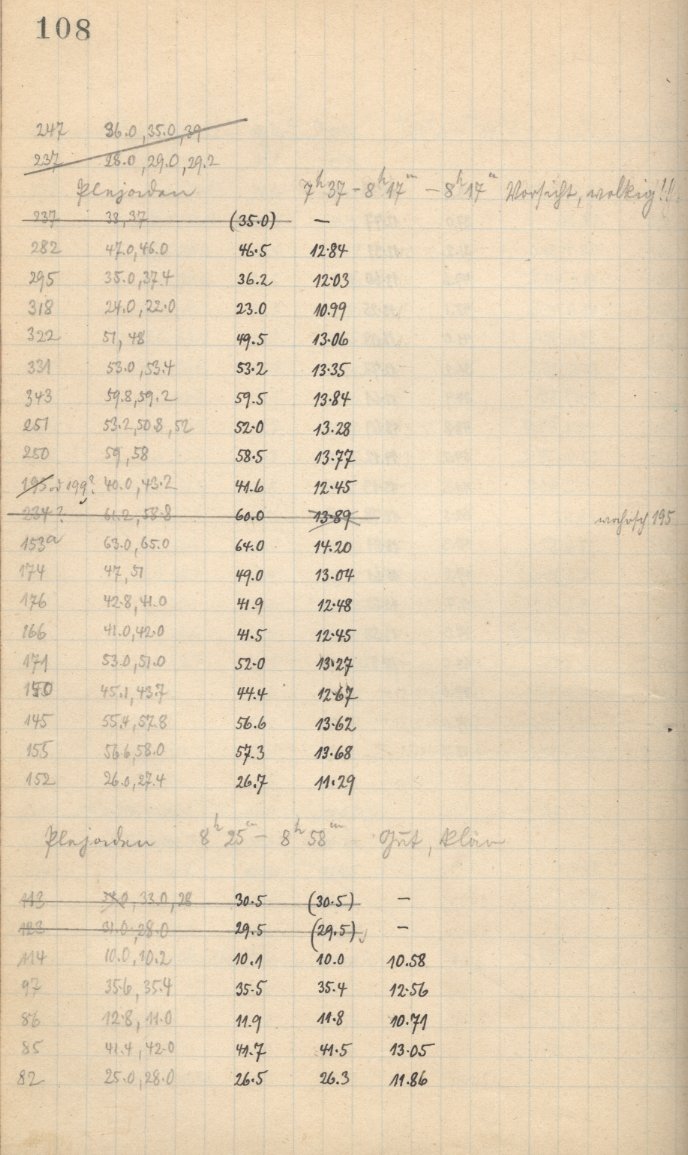 108
247 36.0, 35.0, 39
237 28.0, 29.0, 29.2
Plejaden 7h 37 - 8h 17m - 8h 17m Vorsicht, wolkig!!
237 38, 37 (35.0) —
282 47.0, 46.0 46.5 12.84
295 35.0, 37.4 36.2 12.03
318 24.0, 22.0 23.0 10.99
322 51, 48 49.5 13.06
331 53.0, 53.4 53.2 13.35
343 59.8, 59.2 59.5 13.84
251 53.2, 50.8, 52 52.0 13.28
250 59, 58 58.5 13.77
195 od 199? 40.0, 43.2 41.6 12.45
234? 61.2, 58.8 60.0 13.89 wahrsch 195
153a 63.0, 65.0 64.0 14.20
174 47, 51 49.0 13.04
176 42.8, 41.0 41.9 12.48
166 41.0, 42.0 41.5 12.45
171 53.0, 51.0 52.0 13.27
150 45.1, 43.7 44.4 12.67
145 55.4, 57.8 56.6 13.62
155 56.6, 58.0 57.3 13.68
152 26.0, 27.4 26.7 11.29
Plejaden 8h 25m - 8h 58m Gut, klar
113 33.0, 28 30.5 (30.5) —
123 31.0, 28.0 29.5 (29.5) —
114 10.0, 10.2 10.1 10.0 10.58
97 35.6, 35.4 35.5 35.4 12.56
86 12.8, 11.0 11.9 11.8 10.71
85 41.4, 42.0 41.7 41.5 13.05
82 25.0, 28.0 26.5 26.3 11.86